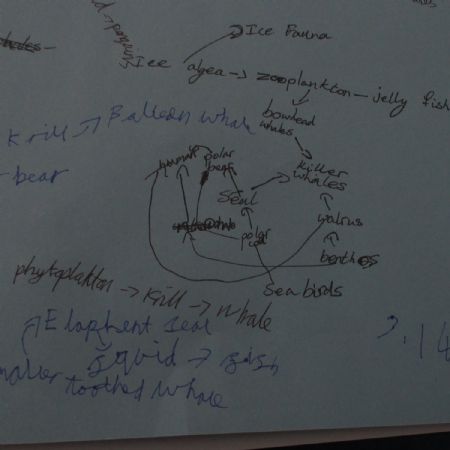 Ice Fauna
Ice algea → zooplankton — jelly fish
bowhead
whales
Krill → Balleen whale
human polar
bear
killer
whales
- bear
Seal
walrus
polar
cod
benthos
Sea birds
phytoplankton → Krill → whale
Elaphent seal
squid → fish
toothed whale